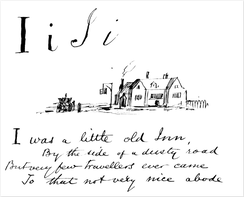 I i I i
I was a little old Inn,
By the side of a dusty road
But very few Travellers ever came
To that not very nice abode